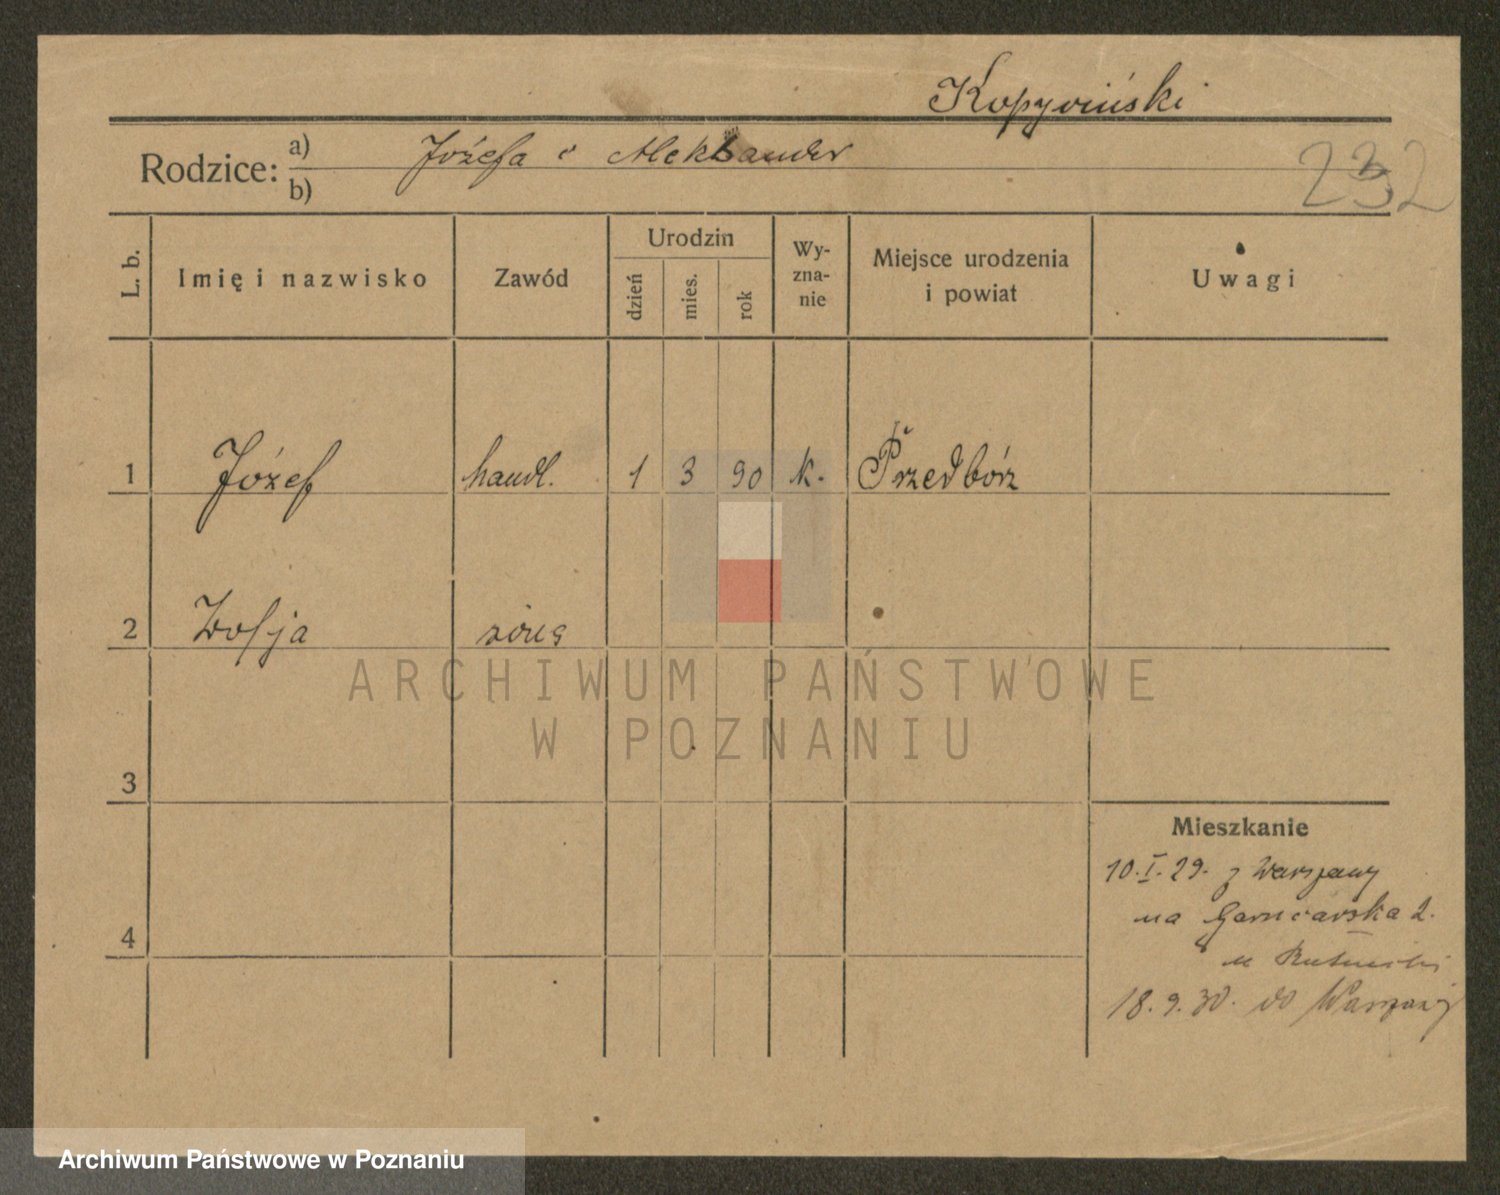 Kopywiński
Rodzice: a) Józefa i Aleksander
b)
232
L. b.
Imię i nazwisko
Zawód
Urodzin
dzień
mies.
rok
Wy-
zna-
nie
Miejsce urodzenia
i powiat
Uwagi
1 Józef handl. 1 3 90 k. Przedbórz
2 Zofja żona
3
4
Mieszkanie
10.I.29. z Warszawy
na Garncarska 2.
u
18.9.30. do Warszawy
ARCHIWUM PAŃSTWOWE
W POZNANIU
Archiwum Państwowe w Poznaniu